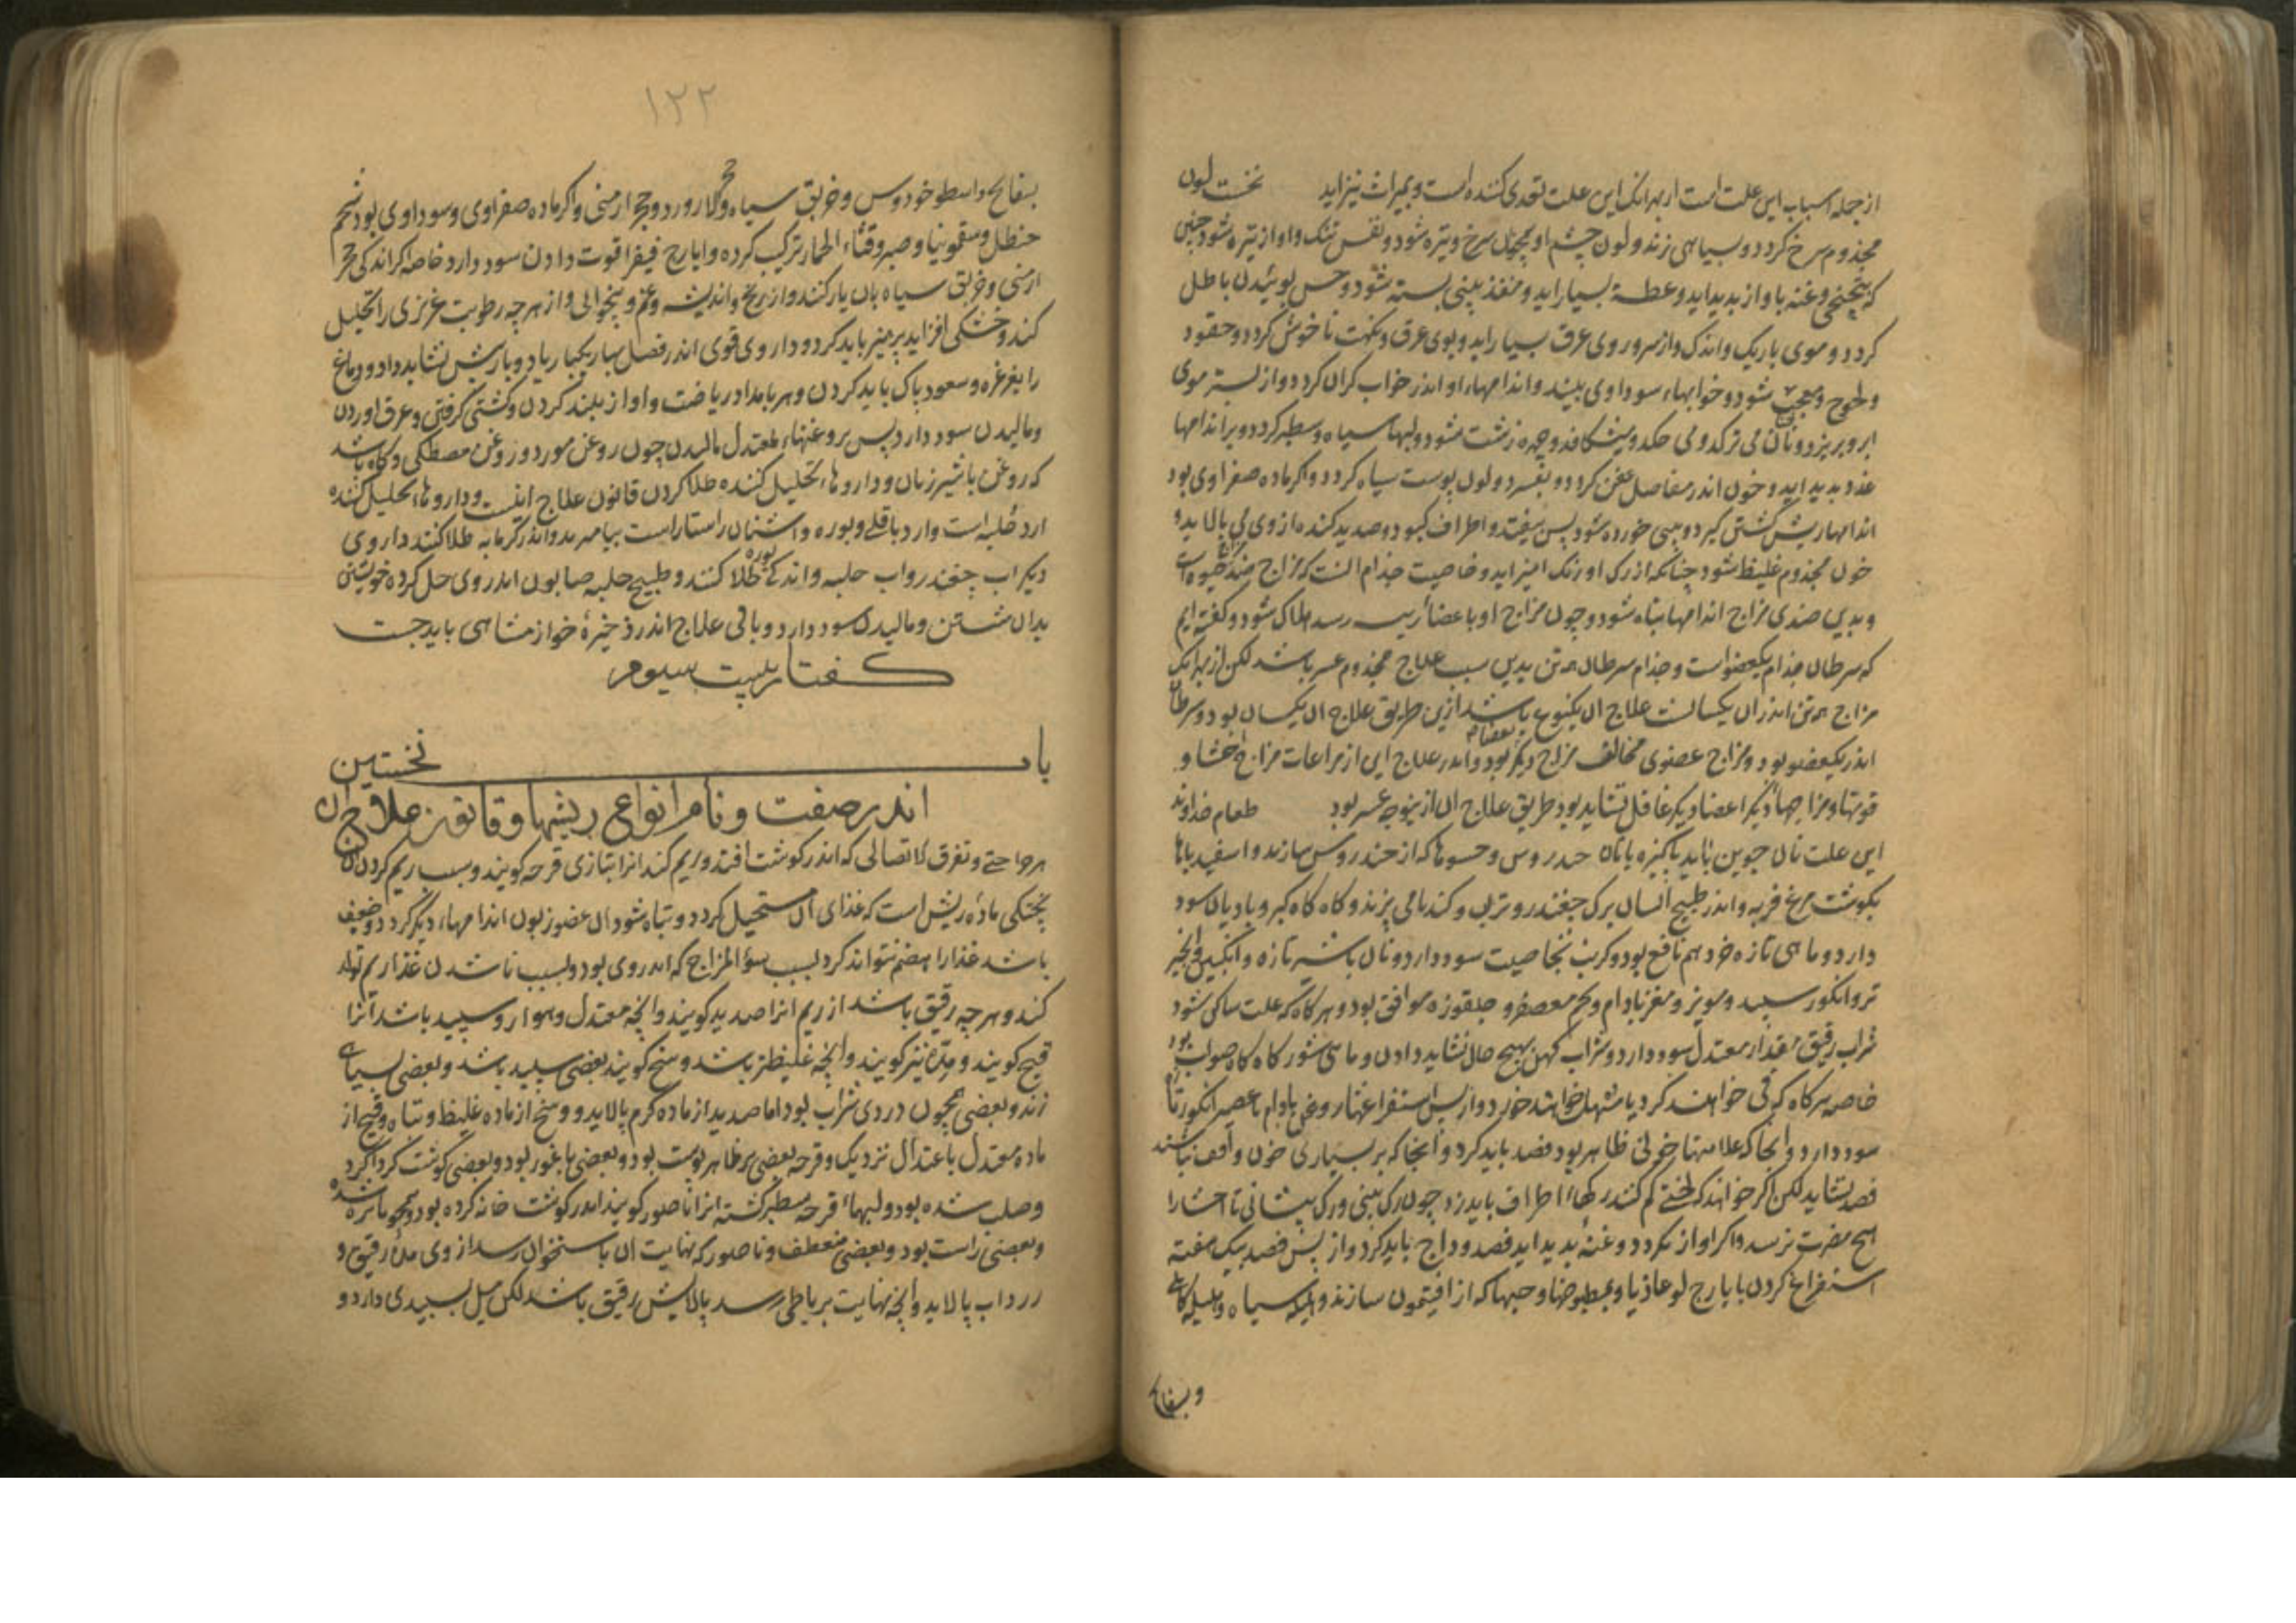 از جمله اسباب این علت است از بهر آنک این علت تعدی کننده است و بمیراث نیز آید نخست لون
مجذوم سرخ گردد و بسیاهی زند و لون چشم او همچنان سرخ و تیره شود و نفس تنک و اواز تیره شود چنین
که و غنه باواز بدید اید و عطسهٔ بسیار اید و منفذ بینی بسته شود و حس بوئیدن باطل
کردد و موی باریک و اندک و از سر و روی عرق بسیار اید و بوی عرق و نکهت ناخوش کردد و حقود
و لجوج و معجب شود و خوابهاء سوداوی بیند و اندامهاء او اندر خواب کران کردد و از بستر موی
ابرو بریزد و ناخن می ترکد و می حکد و میشکافد و چهره زشت شود و لبها سیاه و سطبر کردد و بر اندامها
غدد بدید اید و خون اندر مفاصل عفن کردد و بفسرد و لون پوست سیاه کردد و اکر ماده صفراوی بود
اندامها ریش کشتن کیرد و بینی خورده شود پس بیفتد و اطراف کبود و صدید کنده از وی می پالاید و
خون مجذوم غلیظ شود چنانکه از رک او رنک امیز اید و خاصیت جذام انست که مزاج ضد حیوة است
و بدین ضدی مزاج اندامها تباه شود و چون مزاج او باعضاء رئیسه رسد هلاک شود و کفته ایم
که سرطان جذام یکعضو است و جذام سرطان همه تن بدین سبب علاج مجذوم عسر باشد لکن از بهر انک
مزاج همه تن اندران یکسانست علاج ان یکنوع باشد ازین طریق علاج ان یکسان بود و سرطان
اندر یکعضو بود و مزاج عضوی مخالف مزاج دیکر بود و اندر علاج این از مراعات مزاج احشا و
قوتها و مزاجهاء دیکر اعضاء دیکر غافل نشاید بود طریق علاج ان ازینوجه عسر بود طعام خداوند
این علت نان جوین باید پاکیزه یا نان خندروس و حسوها که از خندروس سازند و اسفیدباها
بکوشت مرغ فربه و اندر طبیخ ایشان برک چغندر و ترب و کندنا می پزند و کاه کاه کبر و بادیان سود
دارد و ماهی تازه خرد هم نافع بود و کرنب بخاصیت سود دارد و نان با شیر تازه و انکبین و انجیر
تر و انکور سپید و مویز و مغز بادام و تخم معصفر و جلقوزه موافق بود و هر کاه که علت ساکن شود
شراب رقیق بمقدار معتدل سود دارد و شراب کهن بهیچ حال نشاید دادن و ماهی شور کاه کاه صواب بود
خاصه هر کاه که قی خواهند کرد یا مسهل خواهند خورد و از پس استفراغها روغن بادام با عصیر انکور تازه
سود دارد و انجا که علامتهاء خونی ظاهر بود فصد باید کرد و انجا که بر بسیاری خون واقف نباشند
فصد نشاید لکن اکر خواهند که لختی کم کنند رکهاء اطراف باید زد چون رک بینی و رک پیشانی تا احشا را
هیچ مضرت نرسد و اکر اواز بکردد و غنه بدید اید فصد وداج باید کرد و از پس فصد بیک هفته
استفراغ کردن بایارج لوغاذیا و بمطبوخها و حبها که از افتیمون سازند و هلیله سیاه و هلیله کابلی
و بسفایج
۱۲۲
بسفایج و اسطوخودوس و خربق سیاه و لاجورد و حجر ارمنی و اکر ماده صفراوی و سوداوی بود شحم
حنظل و سقمونیا و صبر و قثاء الحمار ترکیب کرده و ایارج فیقرا قوت دادن سود دارد خاصه اکر اندکی حجر
ارمنی و خربق سیاه بان یار کنند و از رنج و اندیشه و غم و بیخوابی و از هر چه رطوبت غریزی را تحلیل
کند و خشکی افزاید پرهیز باید کرد و داروی قوی اندر فصل بهار یکبار یا دو بار بیش نشاید داد و دماغ
را بغرغره و سعوط پاک باید کردن و هر بامداد ریاضت و اواز بلند کردن و کشتی کرفتن و عرق اوردن
و مالیدن سود دارد پس بروغنهاء معتدل مالیدن چون روغن مورد و روغن مصطکی و کاه باشد
که روغن با شیر زنان و داروهاء تحلیل کننده طلا کردن قانون علاج اینست و داروهاء تحلیل کننده
ارد حلبه است و ارد باقلی و بوره و اشنان راستاراست بیامیزند و اندر کرمابه طلا کنند داروی
دیکر اب چغندر و اب حلبه و اندکی بوره طلا کنند و طبیخ حلبه صابون اندر وی حل کرده خویشتن
بدان شستن و مالیدن سود دارد و باقی علاج اندر ذخیرهٔ خوارزمشاهی باید جست
کفتار بیست سیوم
باب نخستین
اندر صفت و نام انواع ریشها و قانون علاج ان
هر جراحتی و تفرق الاتصالی که اندر کوشت افتد و ریم کند انرا بتازی قرحه کویند و سبب ریم کردن ان
پختکی مادهٔ ریش است که غذای ان مستحیل کردد و تباه شود ان عضو زبون اندامهاء دیکر کردد و ضعیف
باشد غذا را هضم نتواند کرد بسبب سوء المزاج که اندر وی بود و بسبب ناشدن غذا ریم تولد
کند و هر چه رقیق باشد از ریم انرا صدید کویند و انچه معتدل و هموار و سپید باشد انرا
قیح کویند و مده نیز کویند و انچه غلیظتر باشد وسخ کویند بعضی سپید باشد و بعضی بسیاهی
زند و بعضی همچون دردی شراب بود اما صدید از ماده کرم پالاید و وسخ از ماده غلیظ و تباه و قیح از
ماده معتدل باعتدال نزدیک و قرحه بعضی بر ظاهر پوست بود و بعضی با غور بود و بعضی کوشت کرداکرد
وصلب شده بود و لبهاء قرحه سطبر کشته انرا ناصور کویند اندر کوشت خانه کرده بود و همچو ماسوره شده
و بعضی راست بود و بعضی منعطف و ناصور که نهایت ان باستخوان رسد از وی مدهٔ رقیق و
زرداب پالاید و انچه نهایت برباطی رسد پالایش رقیق باشد لکن میل بسپیدی دارد و